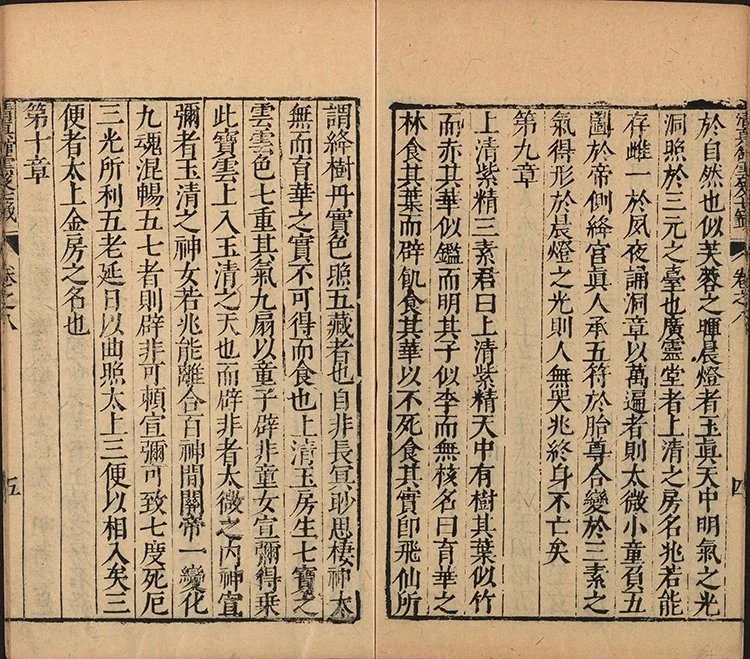 於自然也似芙蓉之暉晨燈者玉眞天中明氣之光
洞照於三元之臺也廣靈堂者上清之房名兆若能
存雌一於夙夜誦洞章以萬遍者則太微小童負五
圖於帝側絳宮眞人承五符於胎尊合變於三素之
氣得形於晨燈之光則人無哭兆終身不亡矣
第九章
上清紫精三素君曰上清紫精天中有樹其葉似竹
而赤其華似鑑而明其子似李而無核名曰育華之
林食其葉而辟飢食其華以不死食其實卽飛仙所
卷之八
四
謂絳樹丹實色照五藏者也自非長冥眇思棲神太
無而育華之實不可得而食也上清玉房生七寶之
雲雲色七重其氣九扇以童子辟非童女宣彌得乗
此寶雲上入玉清之天也而辟非者太微之内神宣
彌者玉清之神女若兆能離合百神閒關帝一變化
九魂混暢五七者則辟非可賴宣彌可致七度死厄
三光所利五老延日以曲照太上三便以相入矣三
便者太上金房之名也
第十章
卷之八
五